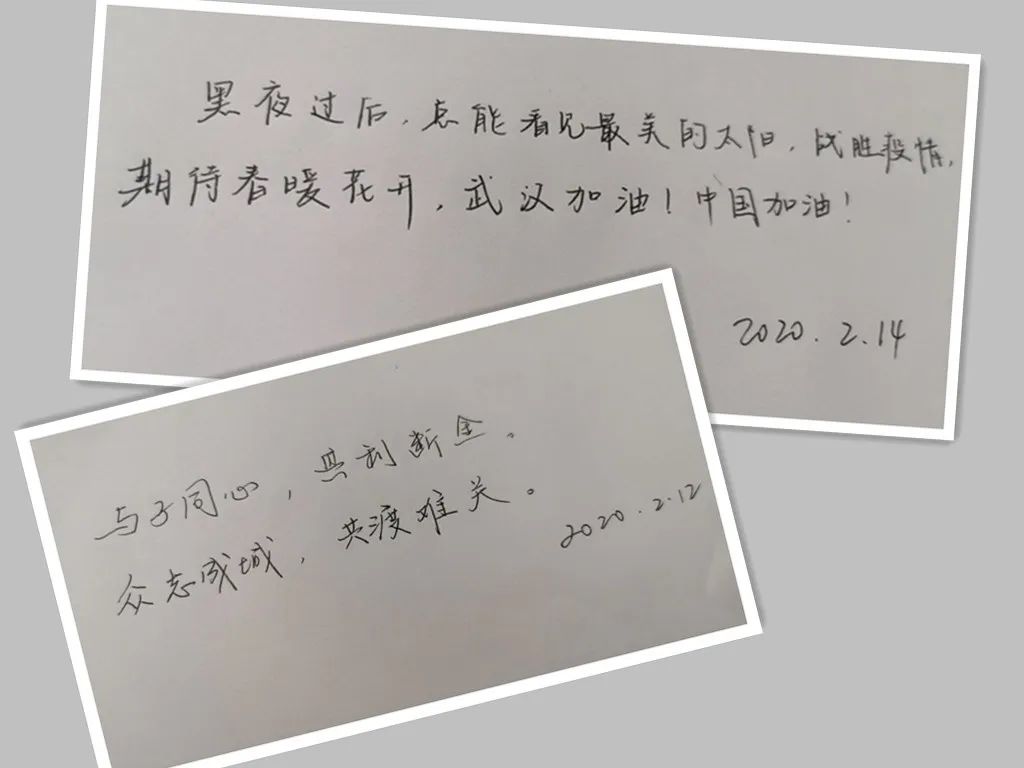 黑夜过后，总能看见最美的太阳，战胜疫情，
期待春暖花开，武汉加油！中国加油！
2020.2.14
与子同心，其利断金。
众志成城，共渡难关。
2020.2.12